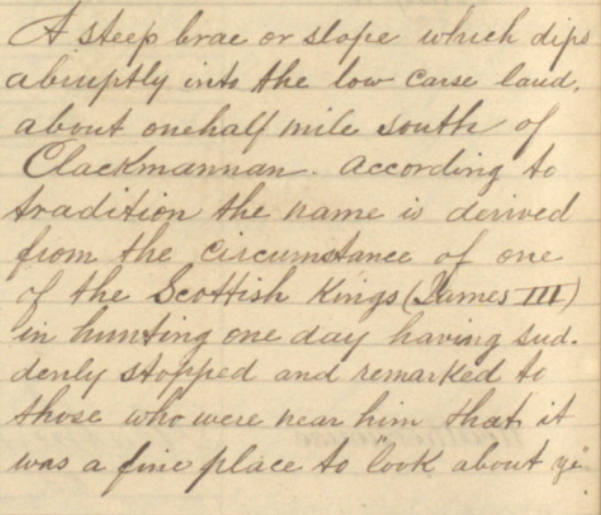 A steep brae or slope which dips
abruptly into the low carse land,
about onehalf mile south of
Clackmannan. According to
tradition the name is derived
from the circumstance of one
of the Scottish Kings (James III)
in hunting one day having sud-
denly stopped and remarked to
those who were near him that it
was a fine place to "look about ye".